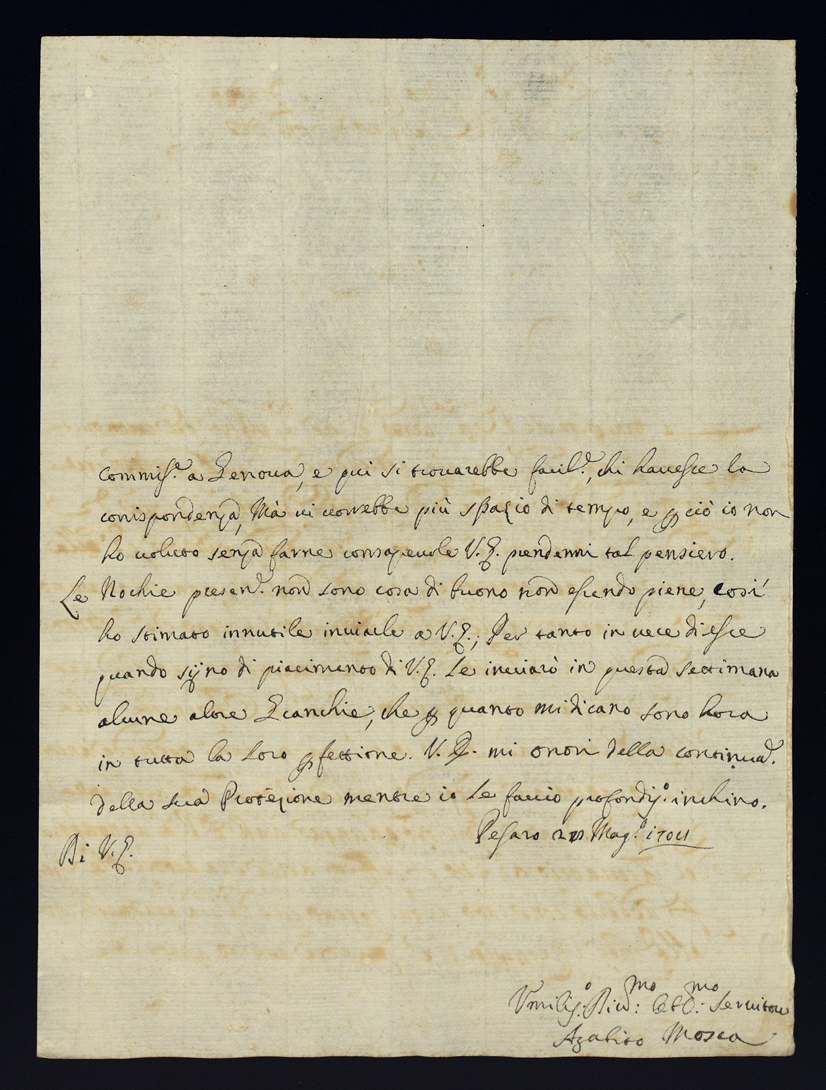 commiss.e a Genova, e qui si trovarebbe facil.e, chi havesse la
corrispondenza, Mà vi vorrebbe più spazio di tempo, e p ciò io non
ho voluto senza farne consapevole V.E. prendermi tal pensiero.
Le Nochie presen.ti non sono cosa di buono non essendo piene, così
ho stimato innutile inviarle a V.E.; Per tanto in vece di esse
quando sijno di piacimento di V.E. Le inviarò in questa settimana
alcune altre Granchie, che p quanto mi dicano sono hora
in tutta la loro pfettione. V.E. mi onori della continua.e
della sua Protezione mentre io Le faccio profondiss.o inchino.
Pesaro Mag.o
Di V.E.
Umiliss.o Div.mo: Obb.mo: Servitore
Mosca